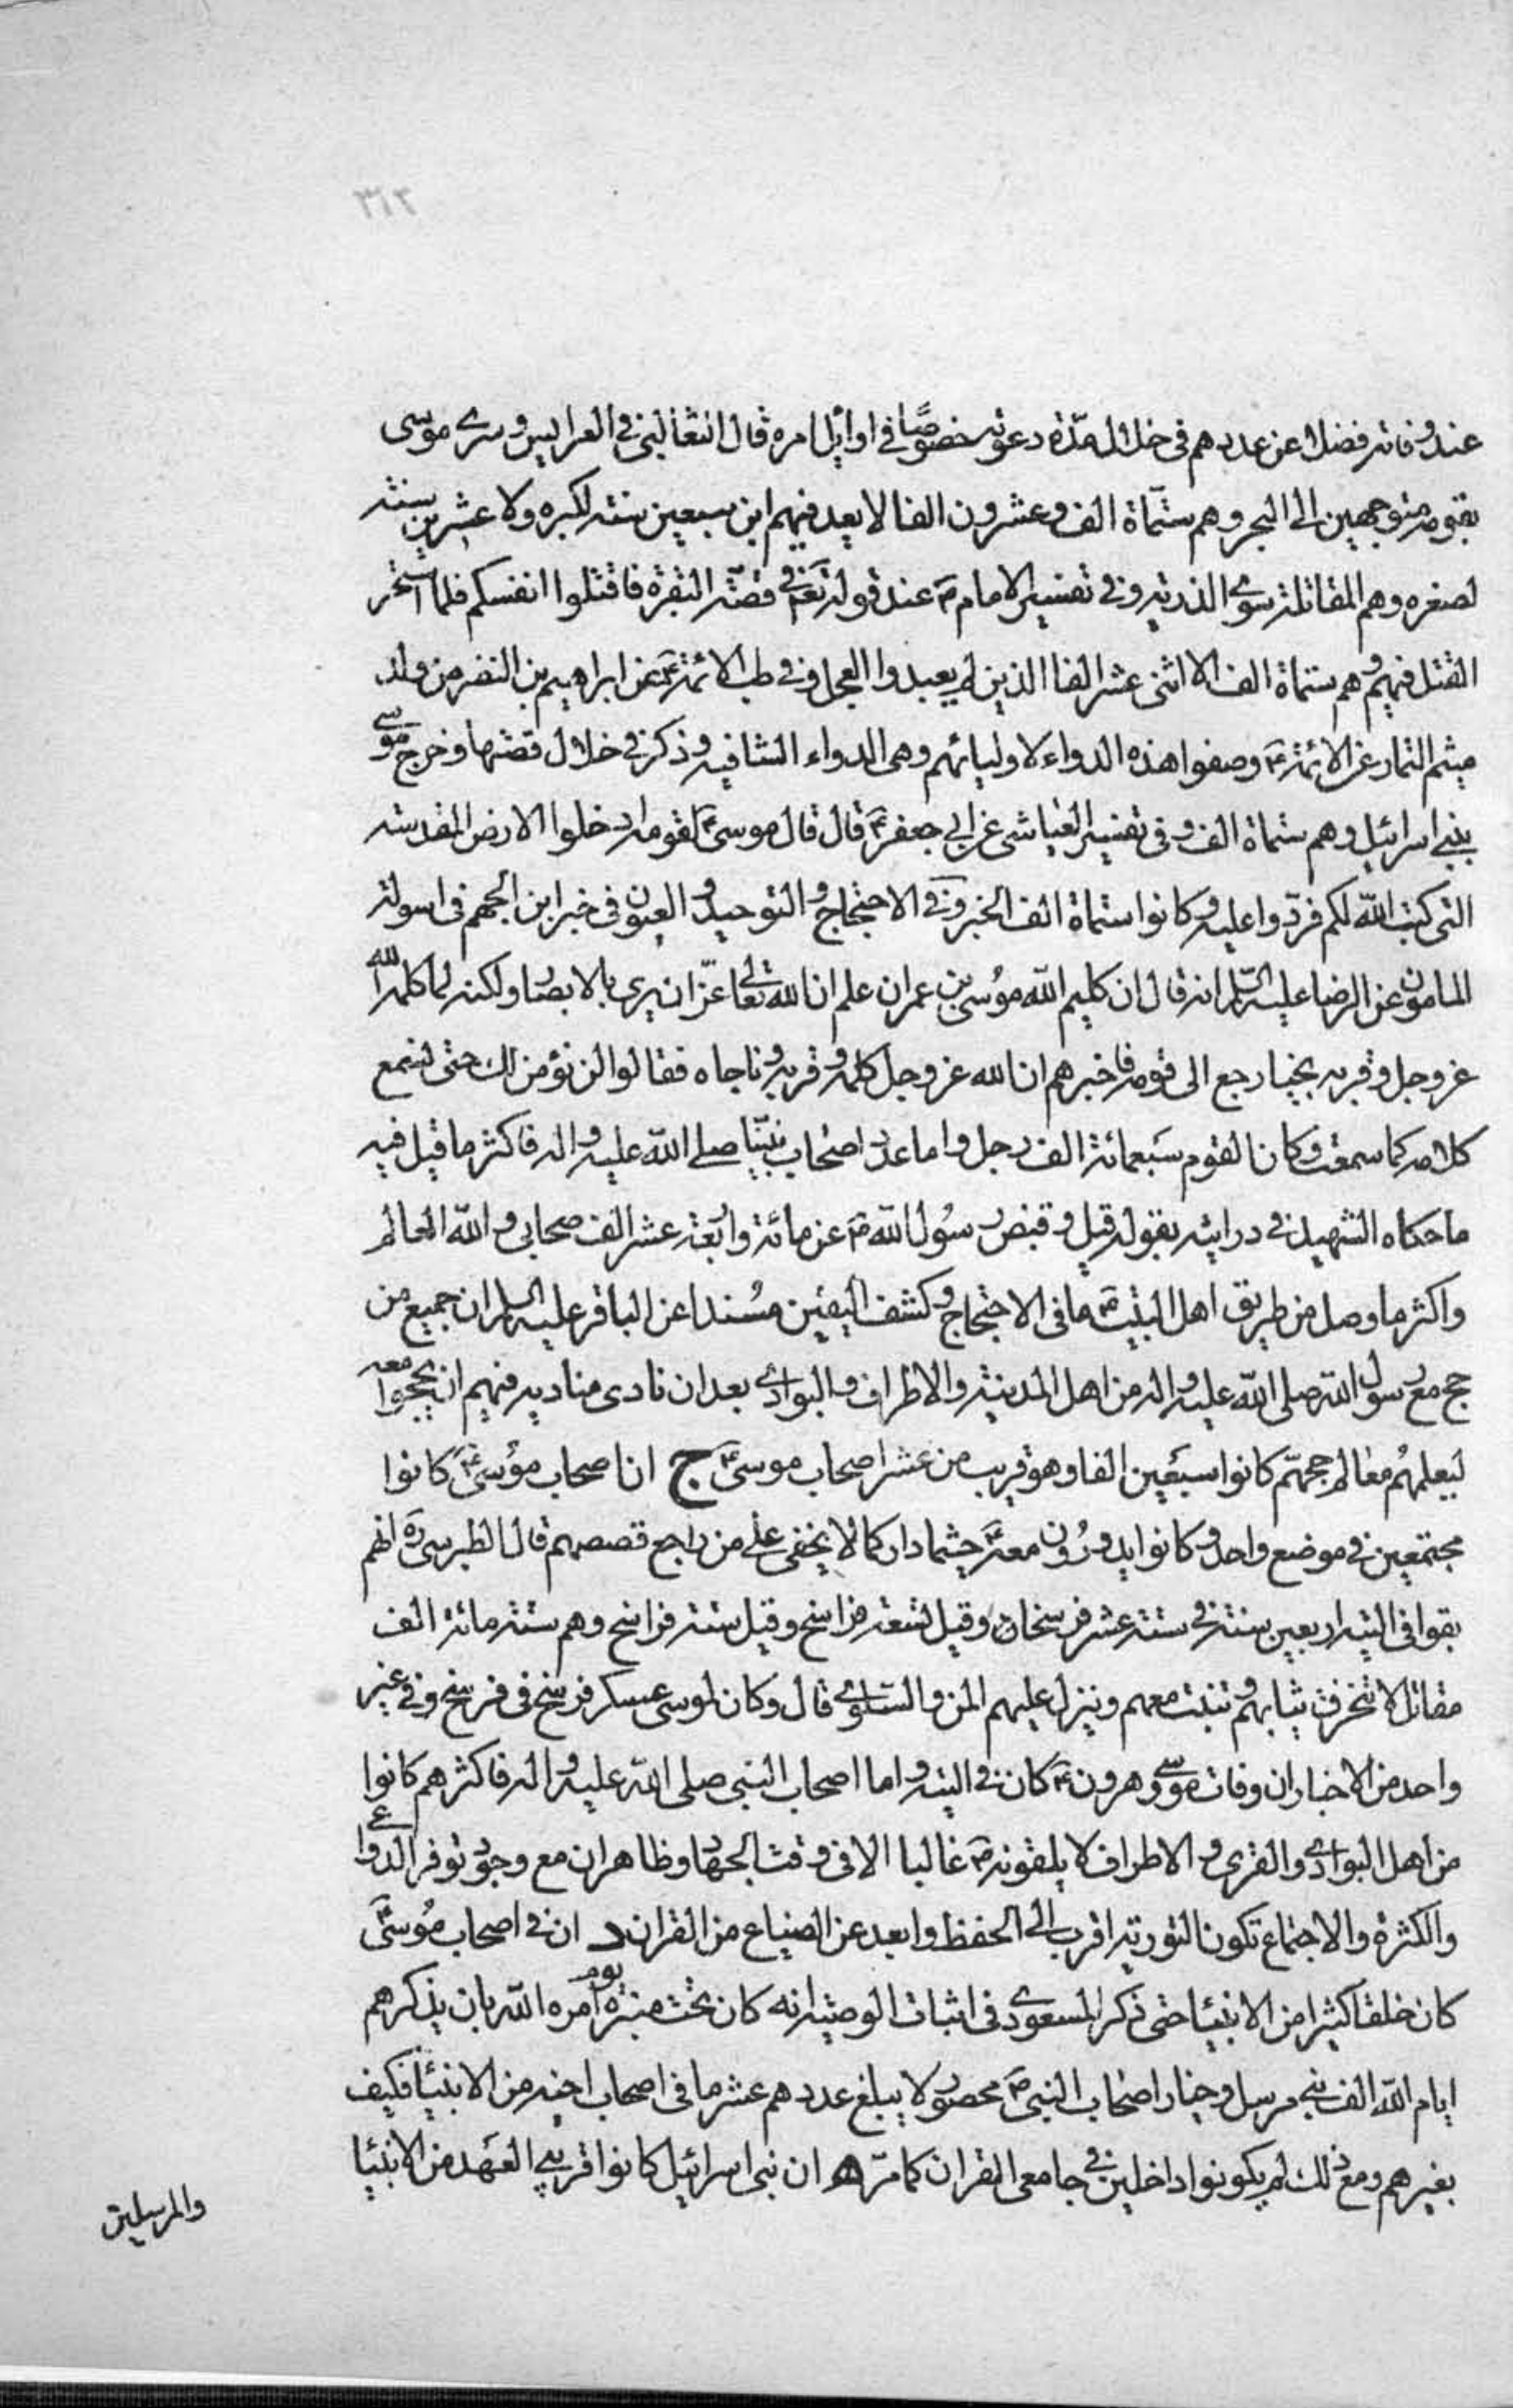 ٣١٢
عند وفاته فضلا عن عددهم في خلال مدة دعوته خصوصًا في اوائل امره قال الثعالبي في العرايس وسرى موسى
بقومه متوجهين الى البحر وهم ستمأة الف وعشرون الفا لا يعد فيهم ابن سبعين سنة لكبره ولا عشرين سنة
لصغره وهم المقاتلة سوى الذرية وفي تفسير الامام ع عند قوله تعم في قصة البقرة فاقتلوا انفسكم فلما استحر
القتل فيهم وهم ستمأة الف الا اثنى عشر الفا الذين لم يعبدوا العجل وفي طب الائمة ع عن ابراهيم بن النضر من ولد
ميثم التمار عن الائمة ع وصفوا هذه الدواء لاوليائهم وهي الدواء الشافيه وذكر في خلال قصتها وخرج موسى
ببني اسرائيل وهم ستمأة الف وفي تفسير العياشى عن ابي جعفر ع قال قال موسى ع لقومه ادخلوا الارض المقدسة
التي كتب الله لكم فردوا عليه وكانوا ستمأة الف الخبر وفي الاحتجاج والتوحيد والعيون في خبر ابن الجهم في اسولة
المامون عن الرضا عليه السلام انه قال ان كليم الله موسى بن عمران علم ان الله تعالى عزّ ان يرى بالابصار ولكنه لما كلمه الله
عز وجل وقربه نجيا رجع الى قومه فاخبرهم ان الله عز وجل كلمه وقربه وناجاه فقالوا لن نؤمن لك حتى نسمع
كلامه كما سمعت وكان القوم سبعمائة الف رجل واما عدد اصحاب نبيّنا صلى الله عليه واله فاكثر ما قيل فيه
ما حكاه الشهيد في درايته بقوله قيل وقبض رسول الله ص عن مائة واربعة عشر الف صحابي والله العالم
واكثر ما وصل من طريق اهل البيت ع ما في الاحتجاج وكشف اليقين مسندا عن الباقر عليه السلام ان جميع من
حج مع رسول الله صلى الله عليه واله من اهل المدينة والاطراف والبوادى بعد ان نادى مناديه فيهم ان يحجوا معه
ليعلمهم معالم حجهم كانوا سبعين الفا وهو قريب من عشر اصحاب موسى ع ج ان اصحاب موسى ع كانوا
مجتمعين في موضع واحد وكانوا يدورون معه ع حيثما دار كما لا يخفى على من راجع قصصهم قال الطبرسى ره انهم
بقوا في التيه اربعين سنة في ستة عشر فرسخا وقيل تسعة فراسخ وقيل ستة فراسخ وهم ستة مائة الف
مقاتل لا تتخرق ثيابهم وتنبت معهم وينزل عليهم المن والسلوى قال وكان لموسى عسكر فرسخ في فرسخ وفي غير
واحد من الاخبار ان وفات موسى وهرون ع كان في التيه واما اصحاب النبي صلى الله عليه واله فاكثرهم كانوا
من اهل البوادى والقرى والاطراف لا يلقونه ص غالبا الا في وقت الجهاد وظاهر ان مع وجود توفر الدواعى
والكثرة والاجتماع تكون التورية اقرب الى الحفظ وابعد عن الضياع من القران د ان في اصحاب موسى ع
كان خلقا كثيرا من الانبيا حتى ذكر المسعودى في اثبات الوصية انه كان تحت منبره يوم امره الله بان يذكرهم
ايام الله الف نبي مرسل وخيار اصحاب النبي ص محصور لا يبلغ عددهم عشر ما في اصحاب اخيه من الانبيا فكيف
بغيرهم ومع ذلك لم يكونوا داخلين في جامعى القران كما مرّ ه ان بنى اسرائيل كانوا قريبى العهد من الانبيا
والمرسلين